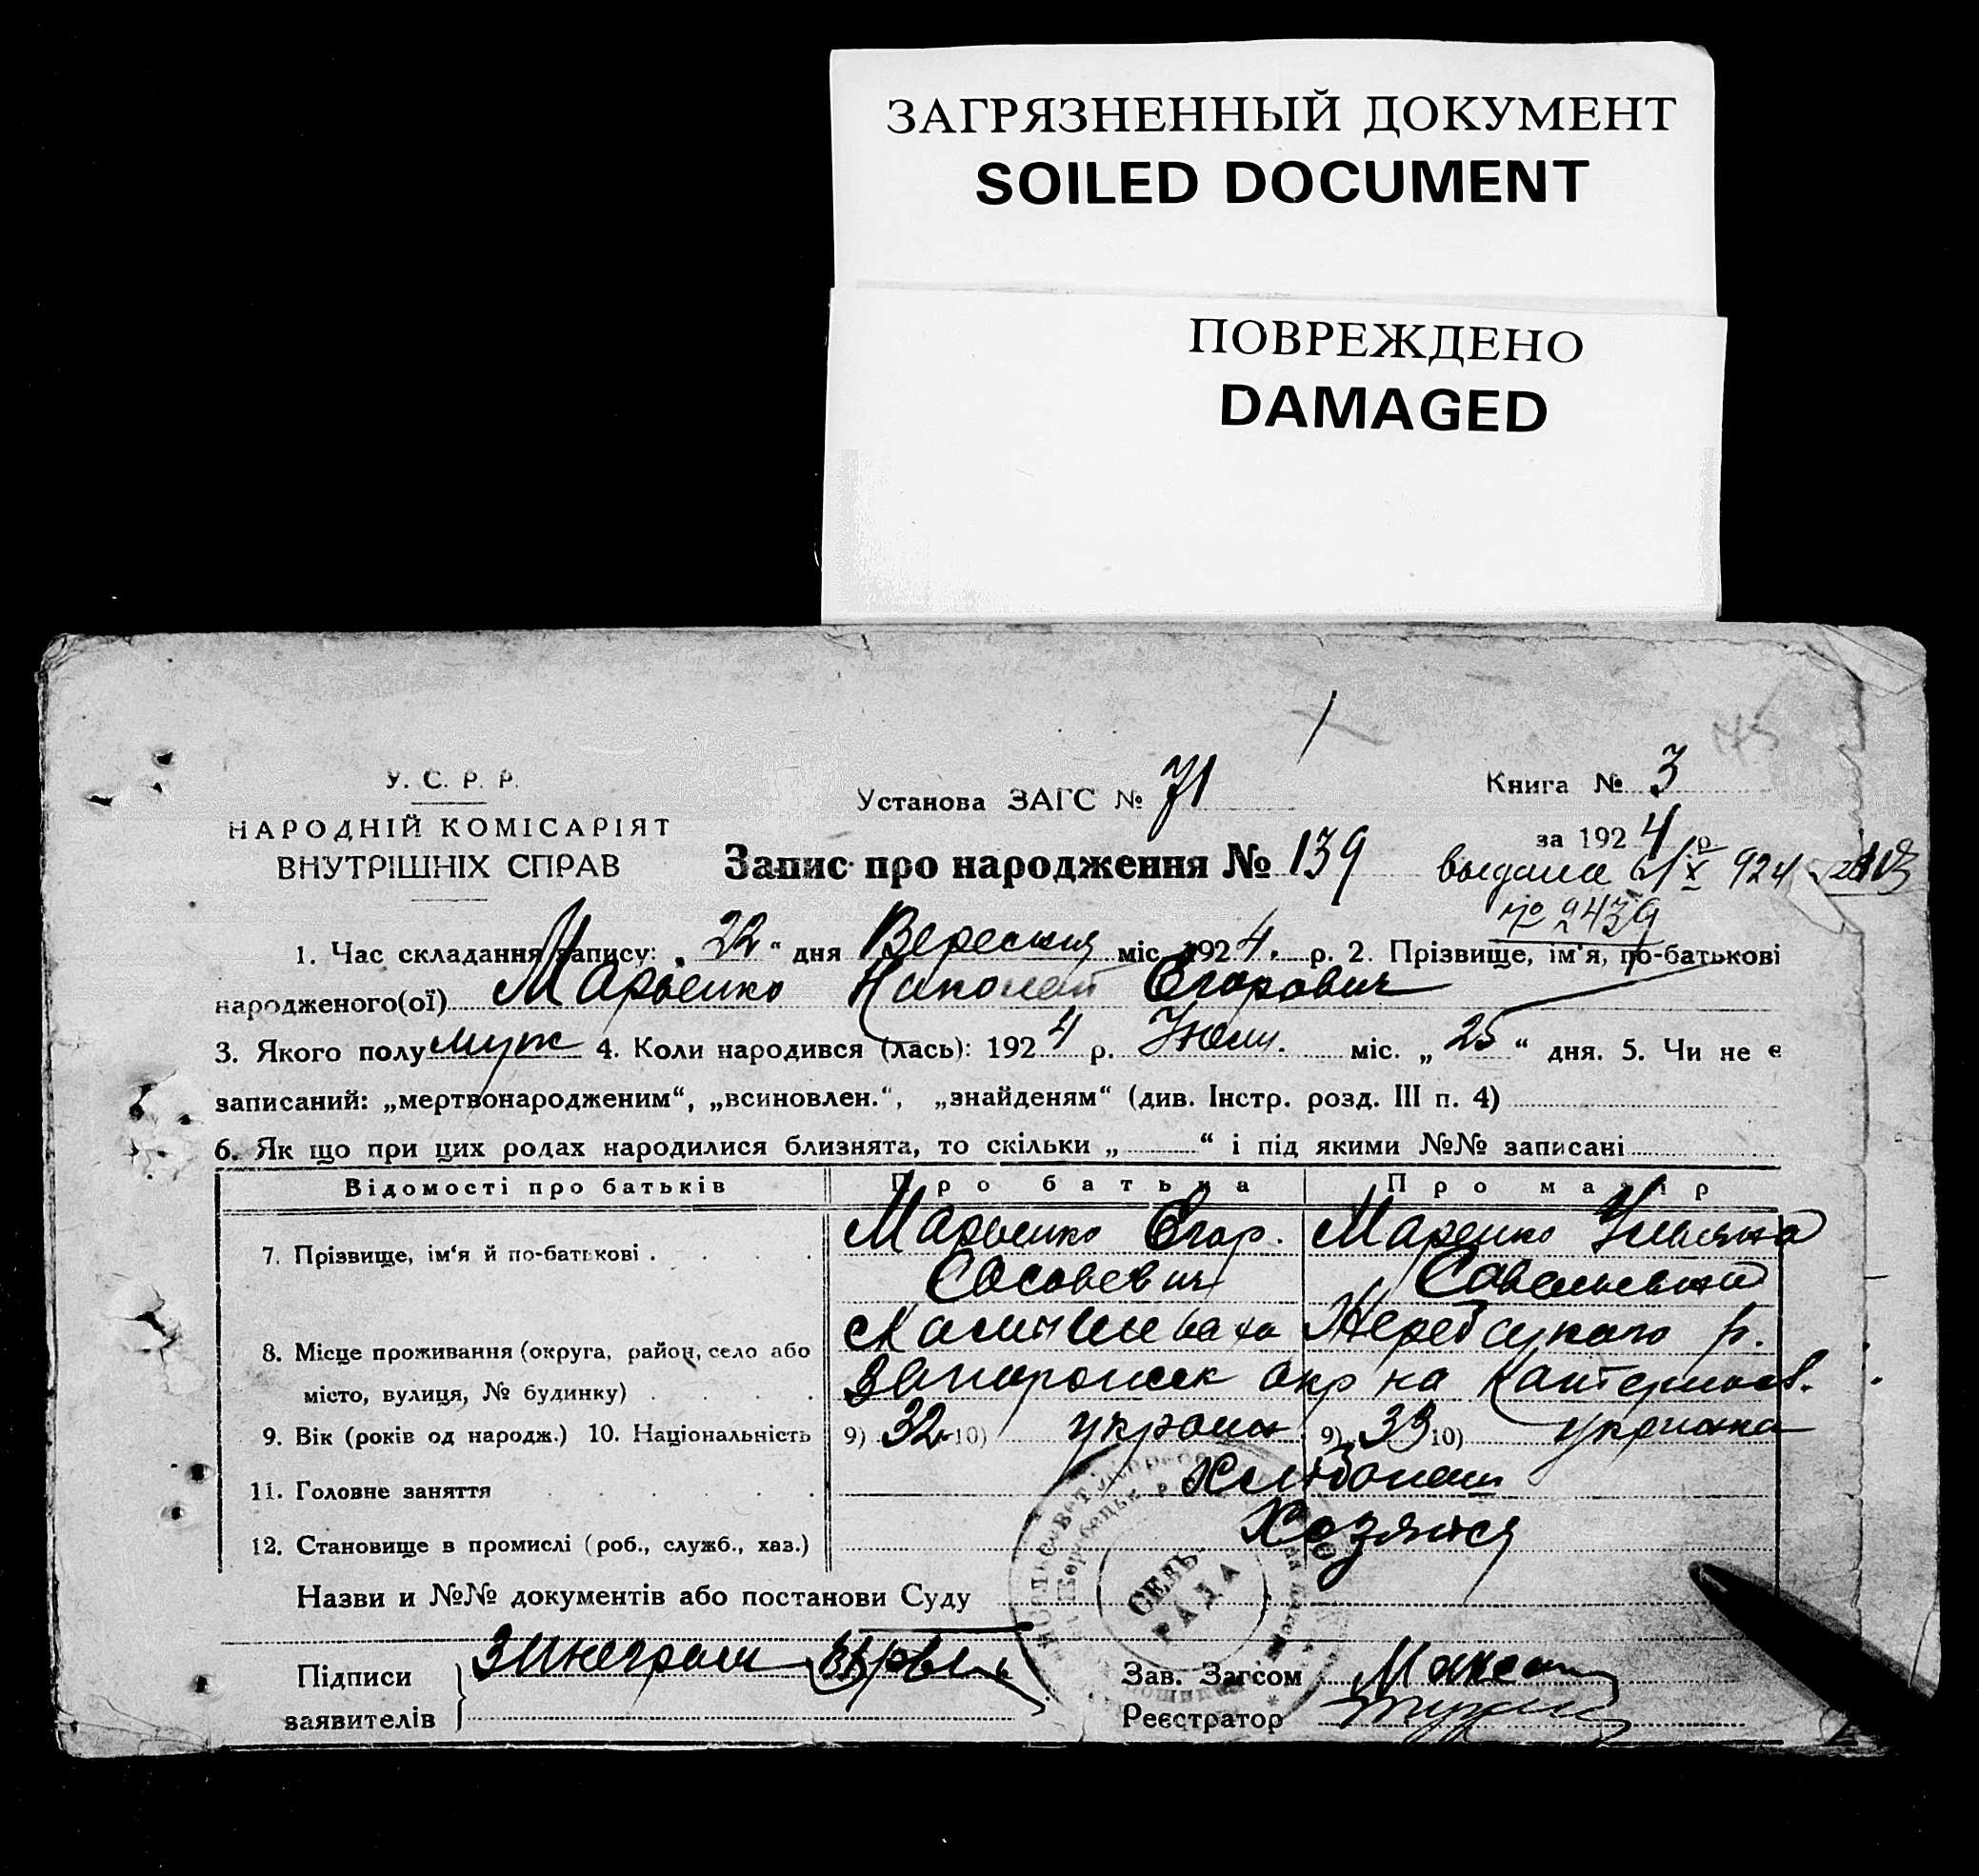 ЗАГРЯЗНЕННЫЙ ДОКУМЕНТ
SOILED DOCUMENT
ПОВРЕЖДЕНО
DAMAGED
У. С. Р. Р.
НАРОДНІЙ КОМІСАРІЯТ
ВНУТРІШНІХ СПРАВ
Установа ЗАГС № 71
Книга № 3
за 1924 р
Запис про народження № 139
выдана 6/X 924
№ 2439
1. Час складання запису: „ 22 “ дня Вересния міс. 1924. р. 2. Прізвище, ім'я, по-батькові
народженого(ої) Марьенко Николай Егорович
3. Якого полу муж 4. Коли народився (лась): 1924 р. Июля. міс. „ 25 “ дня. 5. Чи не є
записаний: „мертвонародженим“, „всиновлен.“, „знайденям“ (див. Інстр. розд. III п. 4)
6. Як що при цих родах народилися близнята, то скільки „ “ і під якими №№ записані
Відомості про батьків Про батька Про матір
7. Прізвище, ім'я й по-батькові . Марьенко Егор. Маренко Ульяна
Савельевна
8. Місце проживання (округа, район, село або Жеребцукого р.
місто, вулиця, № будинку) Запорожск окр на Катериносл.
9. Вік (років од народж.) 10. Національність 9) 32 10) украин 9) 33 10) украинка
11. Головне заняття Хлібопаш
12. Становище в промислі (роб., служб., хаз.) Хозяися
Назви и №№ документів або постанови Суду
СЕЛЬ-
РАДА
Підписи
заявителів
Зав. Загсом
Реєстратор